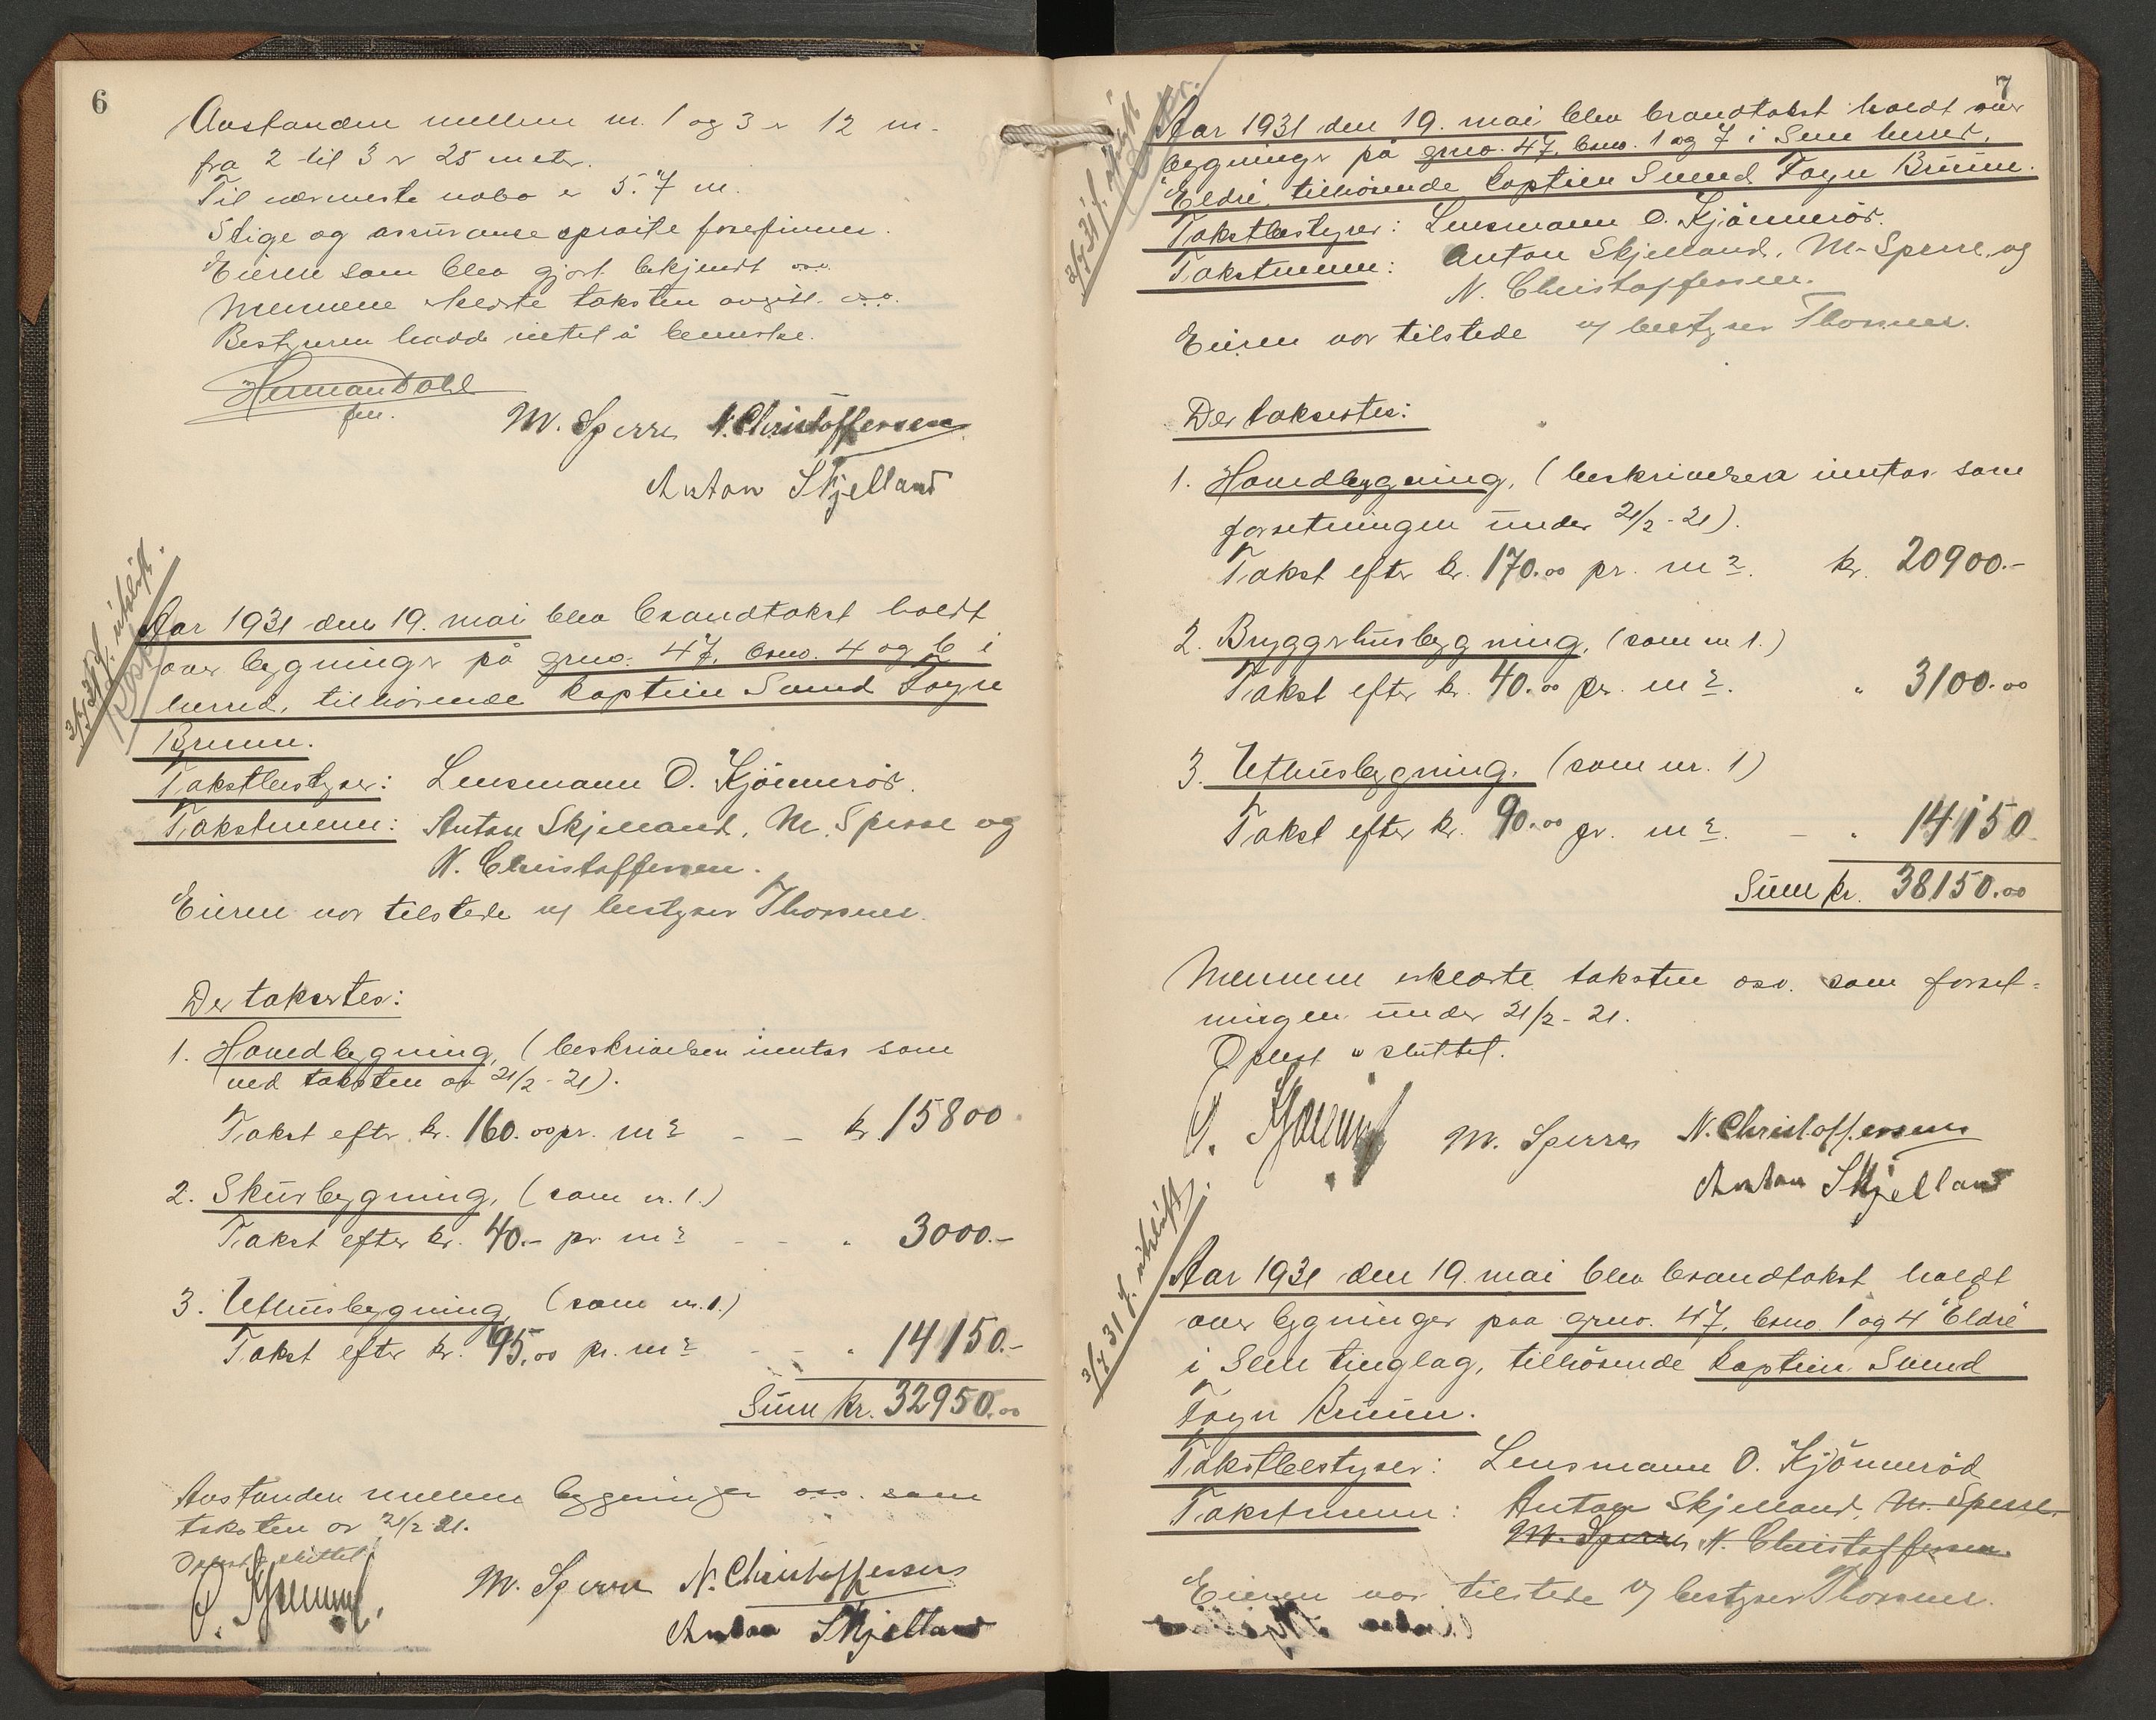 6
Avstanden mellem nr. 1 og 3 er 12 m.
fra 2 til 3 er 25 meter.
Til nærmeste nabo er 5.7 m.
Stige og assuranse sprøite forefinnes.
Eieren som blev gjort bekjendt osv.
Mennene erklærte taksten avgitt osv.
Bestyreren hadde intet å bemerke.
Herman Dahl
fm.
M. Sperre N. Christoffersen
Anton Skjelland
3/7 31 f. utskrift.
Aar 1931 den 19. mai blev brandtakst holdt
over bygninger på grno. 47, brno. 4 og 6 i
herred, tilhörende kaptein Svend Foyn
Bruun.
Takstbestyrer: Lensmann O. Kjönneröd.
Takstmenn: Anton Skjelland, M. Sperre og
N. Christoffersen.
Eieren var tilstede v/ bestyrer
Der taksertes:
1. Hovedbygning, (beskrivelsen inntas som
ved taksten av 21/2-21).
Takst efter kr. 160.00 pr. m2 - - kr. 15800
2. Skurbygning, (som nr. 1.)
Takst efter kr. 40.- pr. m2 - - " 3000.-
3. Uthusbygning (som nr. 1.)
Takst efter kr. 95.00 pr. m2 - - " 14150.-
Sum kr. 32950.00
Avstanden mellem bygninger osv. som
taksten av 21/2 21.
Oplest og sluttet
M. Sperre N. Christoffersen
Anton Skjelland
7
3/7 31 f. utskrift
Aar 1931 den 19. mai blev brandtakst holdt over
bygninger på grno. 47, brno. 1 og 7 i Sem herred,
"Eldre", tilhörende kaptein Svend Foyn Bruun.
Takstbestyrer: Lensmann O. Kjönneröd.
Takstmenn: Anton Skjelland, M. Sperre og
N. Christoffersen.
Eieren var tilstede v/ bestyrer
Der taksertes:
1. Hovedbygning, (beskrivelsen inntas som
forretningen under 21/2-21).
Takst efter kr. 170.00 pr. m2. kr. 20900.-
2. Bryggerhusbygning, (som nr 1.)
Takst efter kr. 40.00 pr. m2. " 3100.00
3. Uthusbygning. (som nr. 1)
Takst efter kr. 90.00 pr. m2. - " 14150
Sum kr. 38150.00
Mennene erklærte taksten osv. som forret-
ningen under 21/2-21.
Oplest og sluttet.
M. Sperre N. Christoffersen
Anton Skjelland
3/7 31 f. utskrift.
Aar 1931 den 19. mai blev brandtakst holdt
over bygninger paa grno. 47, brno. 1 og 4 "Eldre"
i Sem tinglag, tilhörende kaptein Svend
Foyn Bruun.
Takstbestyrer: Lensmann O. Kjönneröd
Takstmenn: Anton Skjelland, M. Sperre
M. Sperre N. Christoffersen.
Eieren var tilstede v/ bestyrer